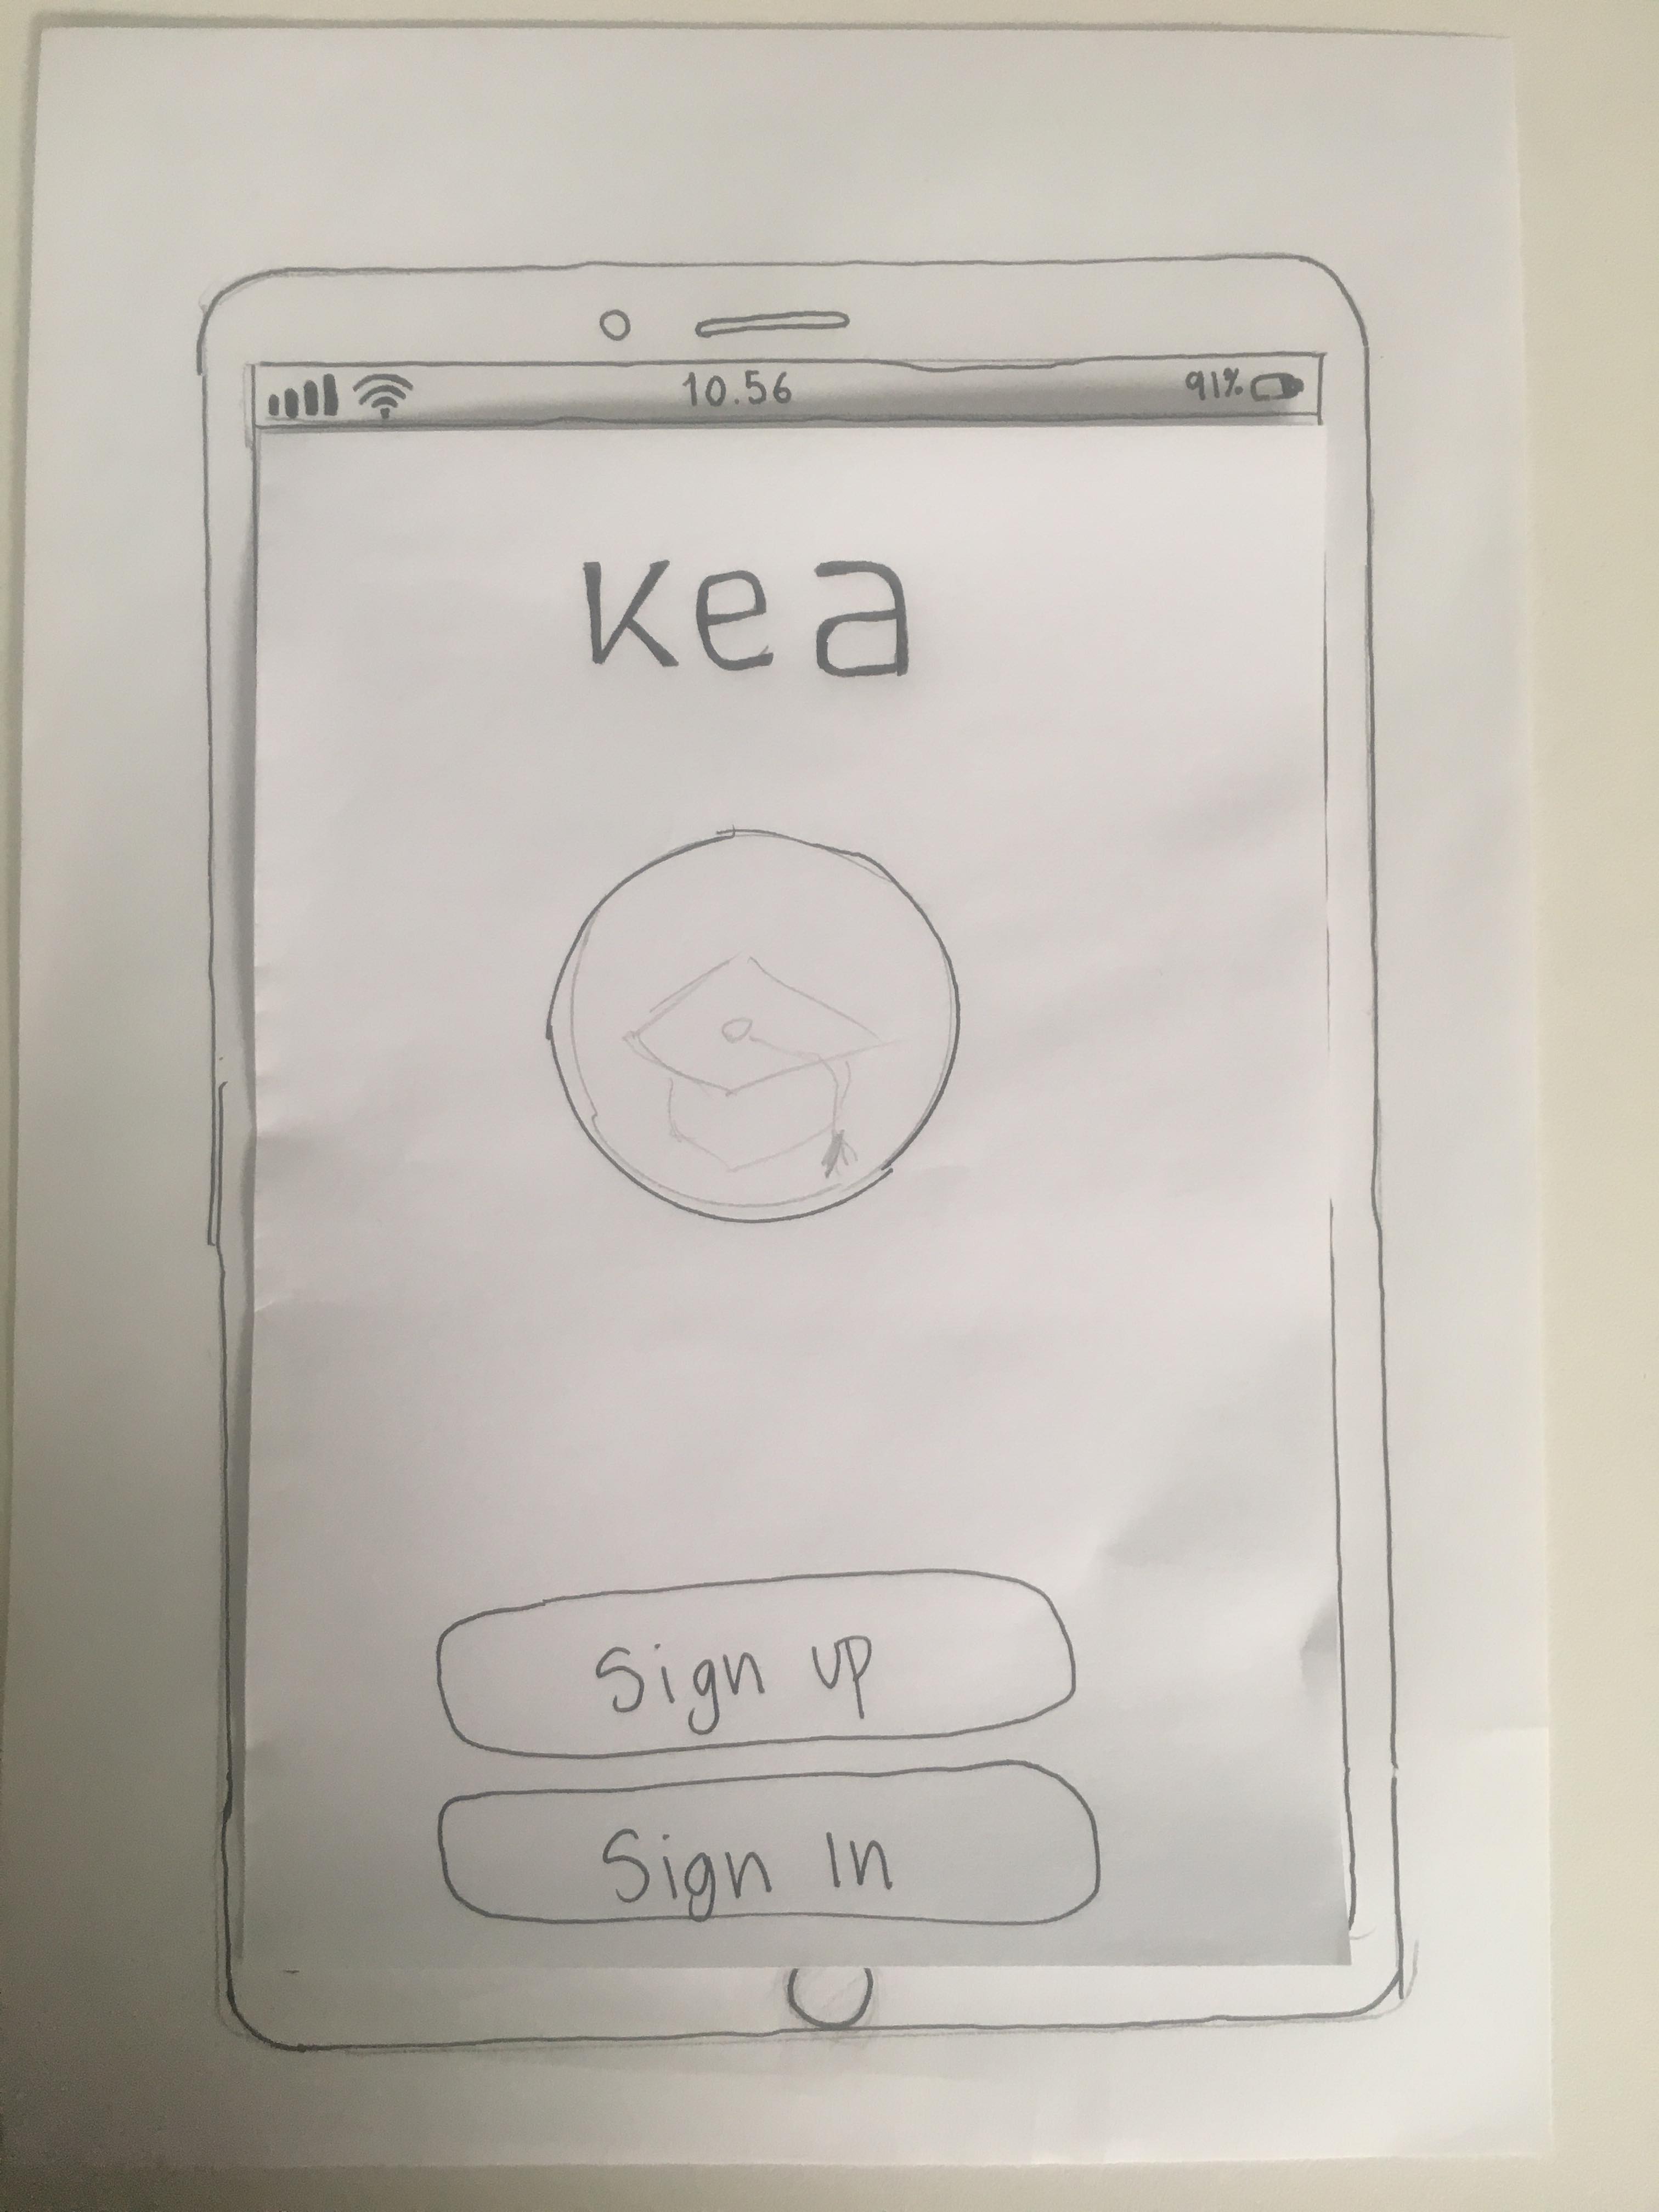 10.56 91%
Kea
Sign up
Sign In